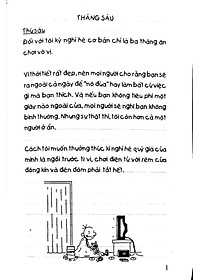 THÁNG SÁU
Thứ sáu
Đối với tôi kỳ nghỉ hè cơ bản chỉ là ba tháng ăn
chơi vô vị.
Vì thời tiết rất đẹp, nên mọi người cho rằng bạn sẽ
ra ngoài cả ngày để "nô đùa" hay làm bất cứ việc
gì mà bạn thích. Và nếu bạn không tiêu phí một
giây nào ngoài cửa, mọi người sẽ nghĩ bạn không
bình thường. Nhưng sự thật thì, tôi còn hơn cả một
người ở ẩn.
Cách tôi muốn thưởng thức kì nghỉ hè quý giá của
mình là ngồi trước ti vi, chơi điện tử với rèm cửa
đóng kín và đèn đóm phải tắt hết.
1